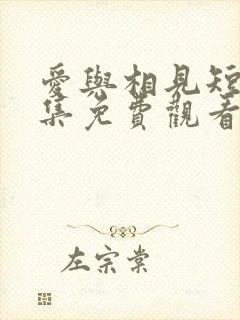 愛與相見短
集免費觀看
左宗棠